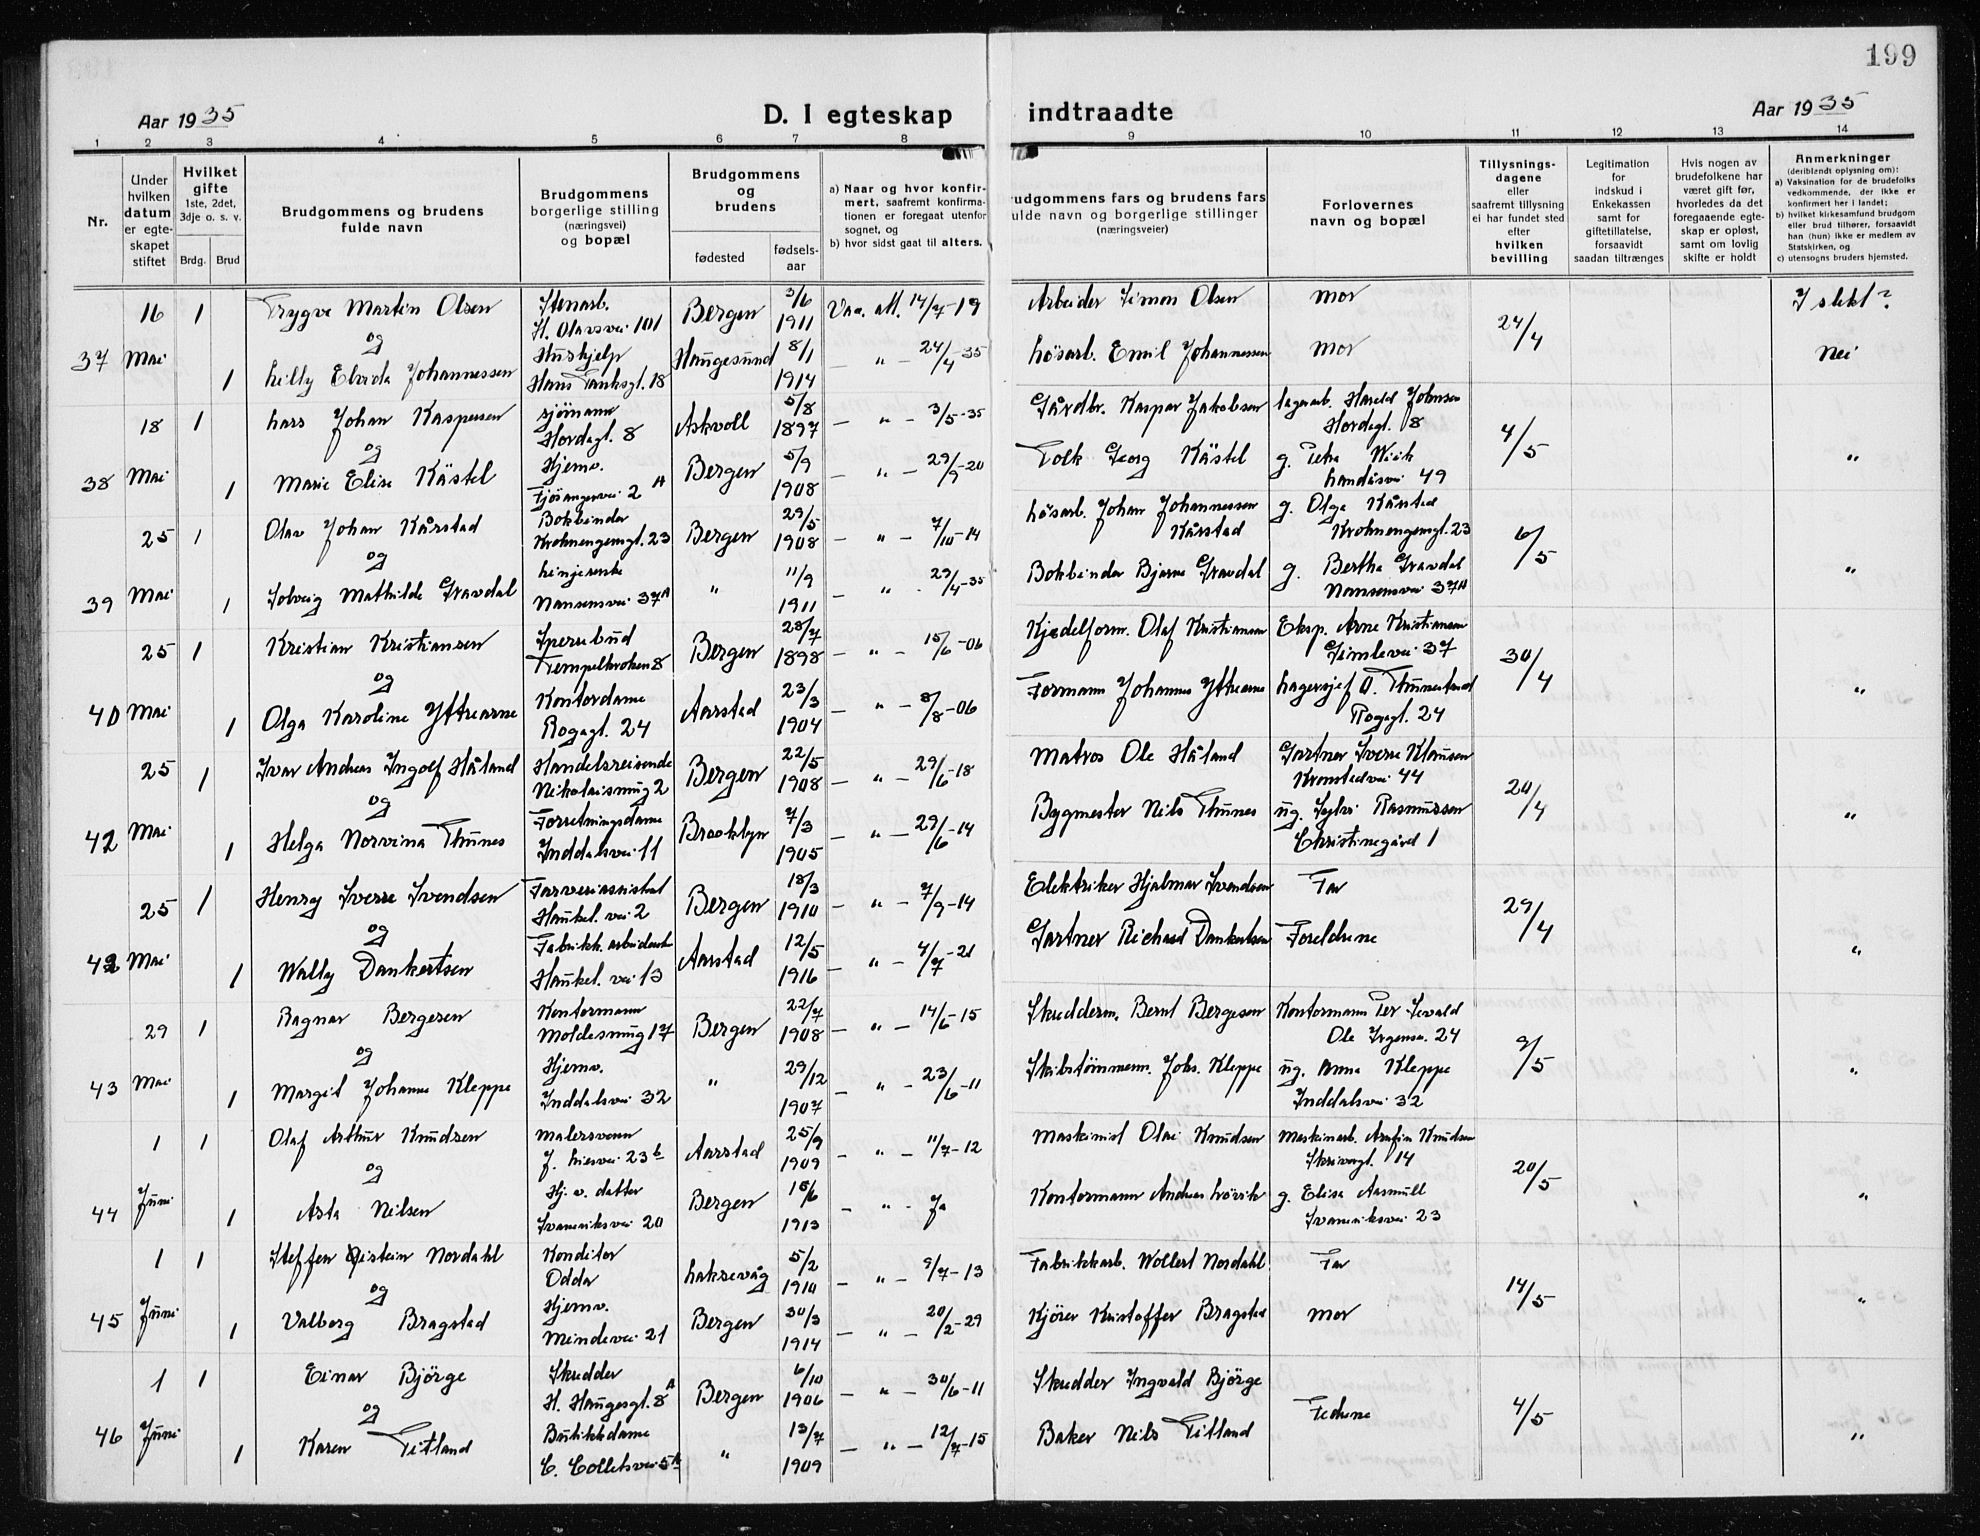 199
Aar 1935
D. I egteskap indtraadte
Aar 1935
1 2 3 4 5 6 7 8 9 10 11 12 13 14
Nr.
Under hvilken datum er egteskapet stiftet
Hvilket gifte 1ste, 2det, 3dje o. s. v.
Brdg. Brud
Brudgommens og brudens fulde navn
Brudgommens borgerlige stilling (næringsvei) og bopæl
Brudgommens og brudens
fødested
fødselsaar
a) Naar og hvor konfirmert, saafremt konfirmationen er foregaat utenfor sognet, og
b) hvor sidst gaat til alters.
rudgommens fars og brudens fars
ulde navn og borgerlige stillinger
(næringsveier)
Forlovernes navn og bopæl
Tillysningsdagene eller saafremt tillysning ei har fundet sted efter hvilken bevilling
Legitimation for indskud i Enkekassen samt for giftetillatelse, forsaavidt saadan tiltrænges
Hvis nogen av brudefolkene har været gift før, hvorledes da det foregaaende egteskap er opløst, samt om lovlig skifte er holdt
Anmerkninger
(deriblandt oplysning om):
a) Vaksination for de brudefolks vedkommende, der ikke er konfirmert her i landet;
b) hvilket kirkesamfund brudgom eller brud tilhører, forsaavidt han (hun) ikke er medlem av Statskirken, og
c) utensogns bruders hjemsted.
16 1 Trygve Martin Olsen Stenarb. Bergen 3/6 Vac. att. 14/7-19 Arbeider Simon Olsen Mor I slekt?
H. Olavsvei 101 1911
24/4
37 Mai og Hushjelp Haugesund 8/1 " 24/4-35 Løsarb. Emil Johannessen Mor Nei
1 Lilly Elvida Johannessen Hans Tanksgt. 18 1914
18 1 Lars Johan Kaspersen sjømann Askvoll 5/8 " 3/5-35 Gårdbr. Kaspar Jakobsen lagerarb. Harald Johnsen
Hordagt. 8 1897 Hordagt. 8
4/5
38 Mai og Hjemv. Bergen 5/9 " 29/9-20 Tolk Georg Kästel g. Petra Wiik "
1 Marie Elise Kästel Fjøsangervei 2 A 1908 Landåsvei 49
25 1 Olav Johan Kårstad Bokbinder Bergen 29/5 " 7/10-14 Løsarb. Johan Johannessen g. Olga Kårstad
Krohnengemgt. 23 1908 Kårstad Krohnengemgt. 23
6/5
39 Mai og Linjerenske " 11/9 " 29/4-35 Bokbinder Bjarne Gravdal g. Bertha Gravdal "
1 Solveig Mathilde Gravdal Nansensvei 37A 1911 Nansensvei 37A
25 1 Kristian Kristiansen Sperrebud Bergen 28/7 " 15/6-06 Kjedelform. Olaf Kristiansen Eksp. Arne Kristiansen
Tempelkroken 8 1898 Gimlevei 37
30/4
40 Mai og Kontordame Aarstad 23/3 " 8/8-06 Formann Johannes Yttrearne Lagersjef O. Thunestand "
1 Olga Karoline Yttrearne Rogagt. 24 1904 Rogagt. 24
25 1 Ivar Andreas Ingolf Håland Handelsreisende Bergen 22/5 " 29/6-18 Matros Ole Håland Gartner Sverre Klausen
Nikolaismug 2 1908 Kronstadvei 44
20/4
42 Mai og Forretningsdame Brooklyn 7/3 " 29/6-14 Bygmester Nils Thunes ug. Sylvi Rasmussen "
1 Helga Norvina Thunes Inddalsvei 11 1905 Christinegård 1
25 1 Henry Sverre Svendsen Farveriassistent Bergen 18/3 " 7/9-14 Elektriker Hjalmar Svendsen Far
Haukel. vei 2 1910
29/4
42 Mai og Fabrikk. arbeiderske Aarstad 12/5 " 4/7-21 Gartner Richard Dankertsen Foreldrene "
1 Wally Dankertsen Haukel. vei 13 1916
29 1 Ragnar Bergesen Kontormann Bergen 22/7 " 14/6-15 Skudderm. Bernt Bergesen Kontormann Per Sevald
Moldesmug 17 1908 Ole Irgensv. 24
9/5
43 Mai og Hjemv. " 29/12 " 23/6-11 Skibstømmerm. Johs. Kleppe ug. Anna Kleppe "
1 Margit Johanne Kleppe Inddalsvei 32 1907 Inddalsvei 32
1 1 Olaf Arthur Knudsen Malersvenn Aarstad 25/9 " 11/7-12 Maskinist Olai Knudsen Maskinarb. Arnfin Knudsen
J. Liesvei 23 b 1909 Skrivergt. 14
20/5
44 Juni og Hj. v. datter Bergen 18/6 " Ja Kontormann Andreas Løvik g. Elisa Aasmull "
1 Asta Nilsen Svaneviksvei 20 1913 Svaneviksvei 23
1 1 Steffen Øistein Nordahl Konditor Laksevåg 5/2 " 9/7-13 Fabrikkarb. Wollert Nordahl Far
Odda 1910
14/5
45 Juni og Hjemv. Bergen 30/3 " 20/2-29 Kjører Kristoffer Bragstad Mor "
1 Valborg Bragstad Mindevei 21 1914
1 1 Einar Bjørge Skredder Bergen 6/10 " 30/6-11 Skredder Ingvald Bjørge
H. Haugesgt. 8 A 1906
Fedrene 4/5
46 Juni og Butikkdame " 13/7 " 12/7-15 Baker Nils Titland "
1 Karen Titland C. Colletsvei 5A 1909